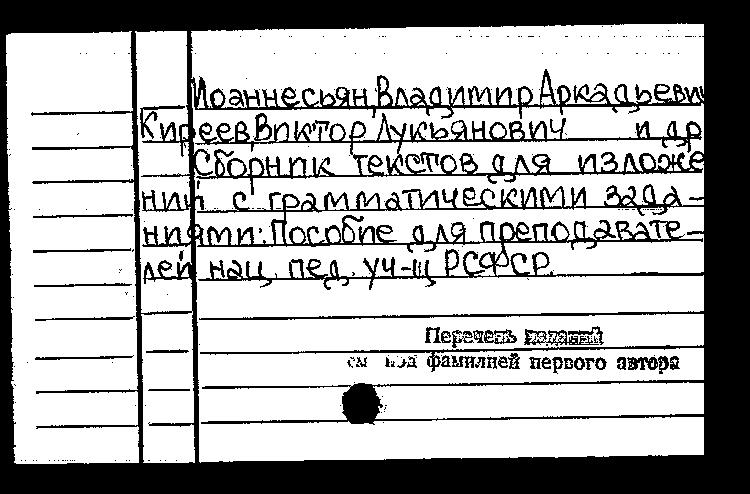 Иоаннесьян, Владимир Аркадьевич
Киреев, Виктор Лукьянович и др
Сборник текстов для изложе
ний с грамматическими зада-
ниями: Пособие для преподавате-
лей нац. пед. уч-щ РСФСР.
Перечень изданий
см под фамилией первого автора